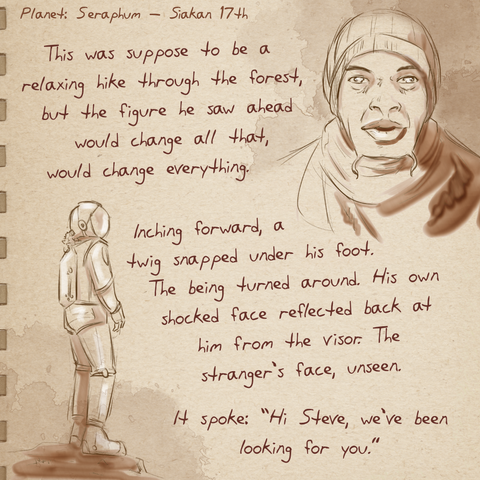 Planet: Seraphum — Siakan 17th
This was suppose to be a
relaxing hike through the forest,
but the figure he saw ahead
would change all that,
would change everything.
Inching forward, a
twig snapped under his foot.
The being turned around. His own
shocked face reflected back at
him from the visor. The
stranger's face, unseen.
It spoke: "Hi Steve, we've been
looking for you."